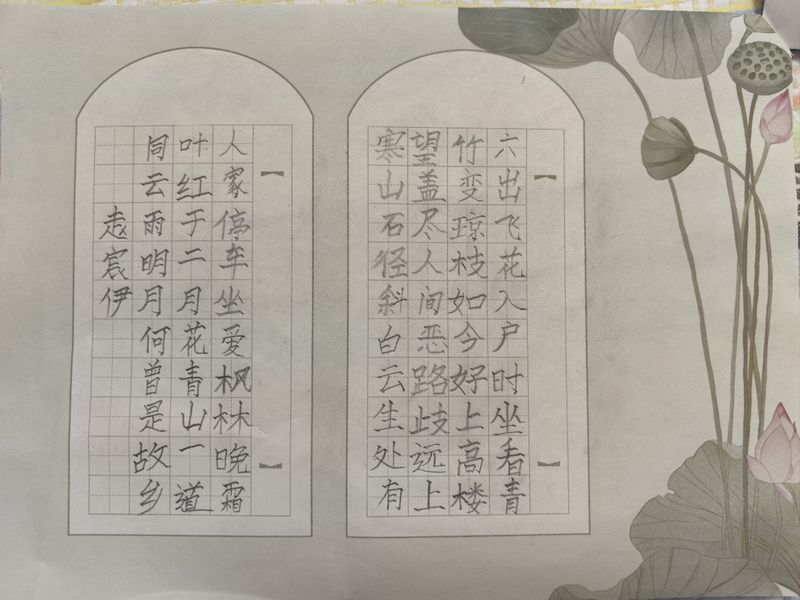 六出飞花入户时坐看青
竹变琼枝如今好上高楼
望盖尽人间恶路歧远上
寒山石径斜白云生处有
人家停车坐爱枫林晚霜
叶红于二月花青山一道
同云雨明月何曾是故乡
赵宸伊